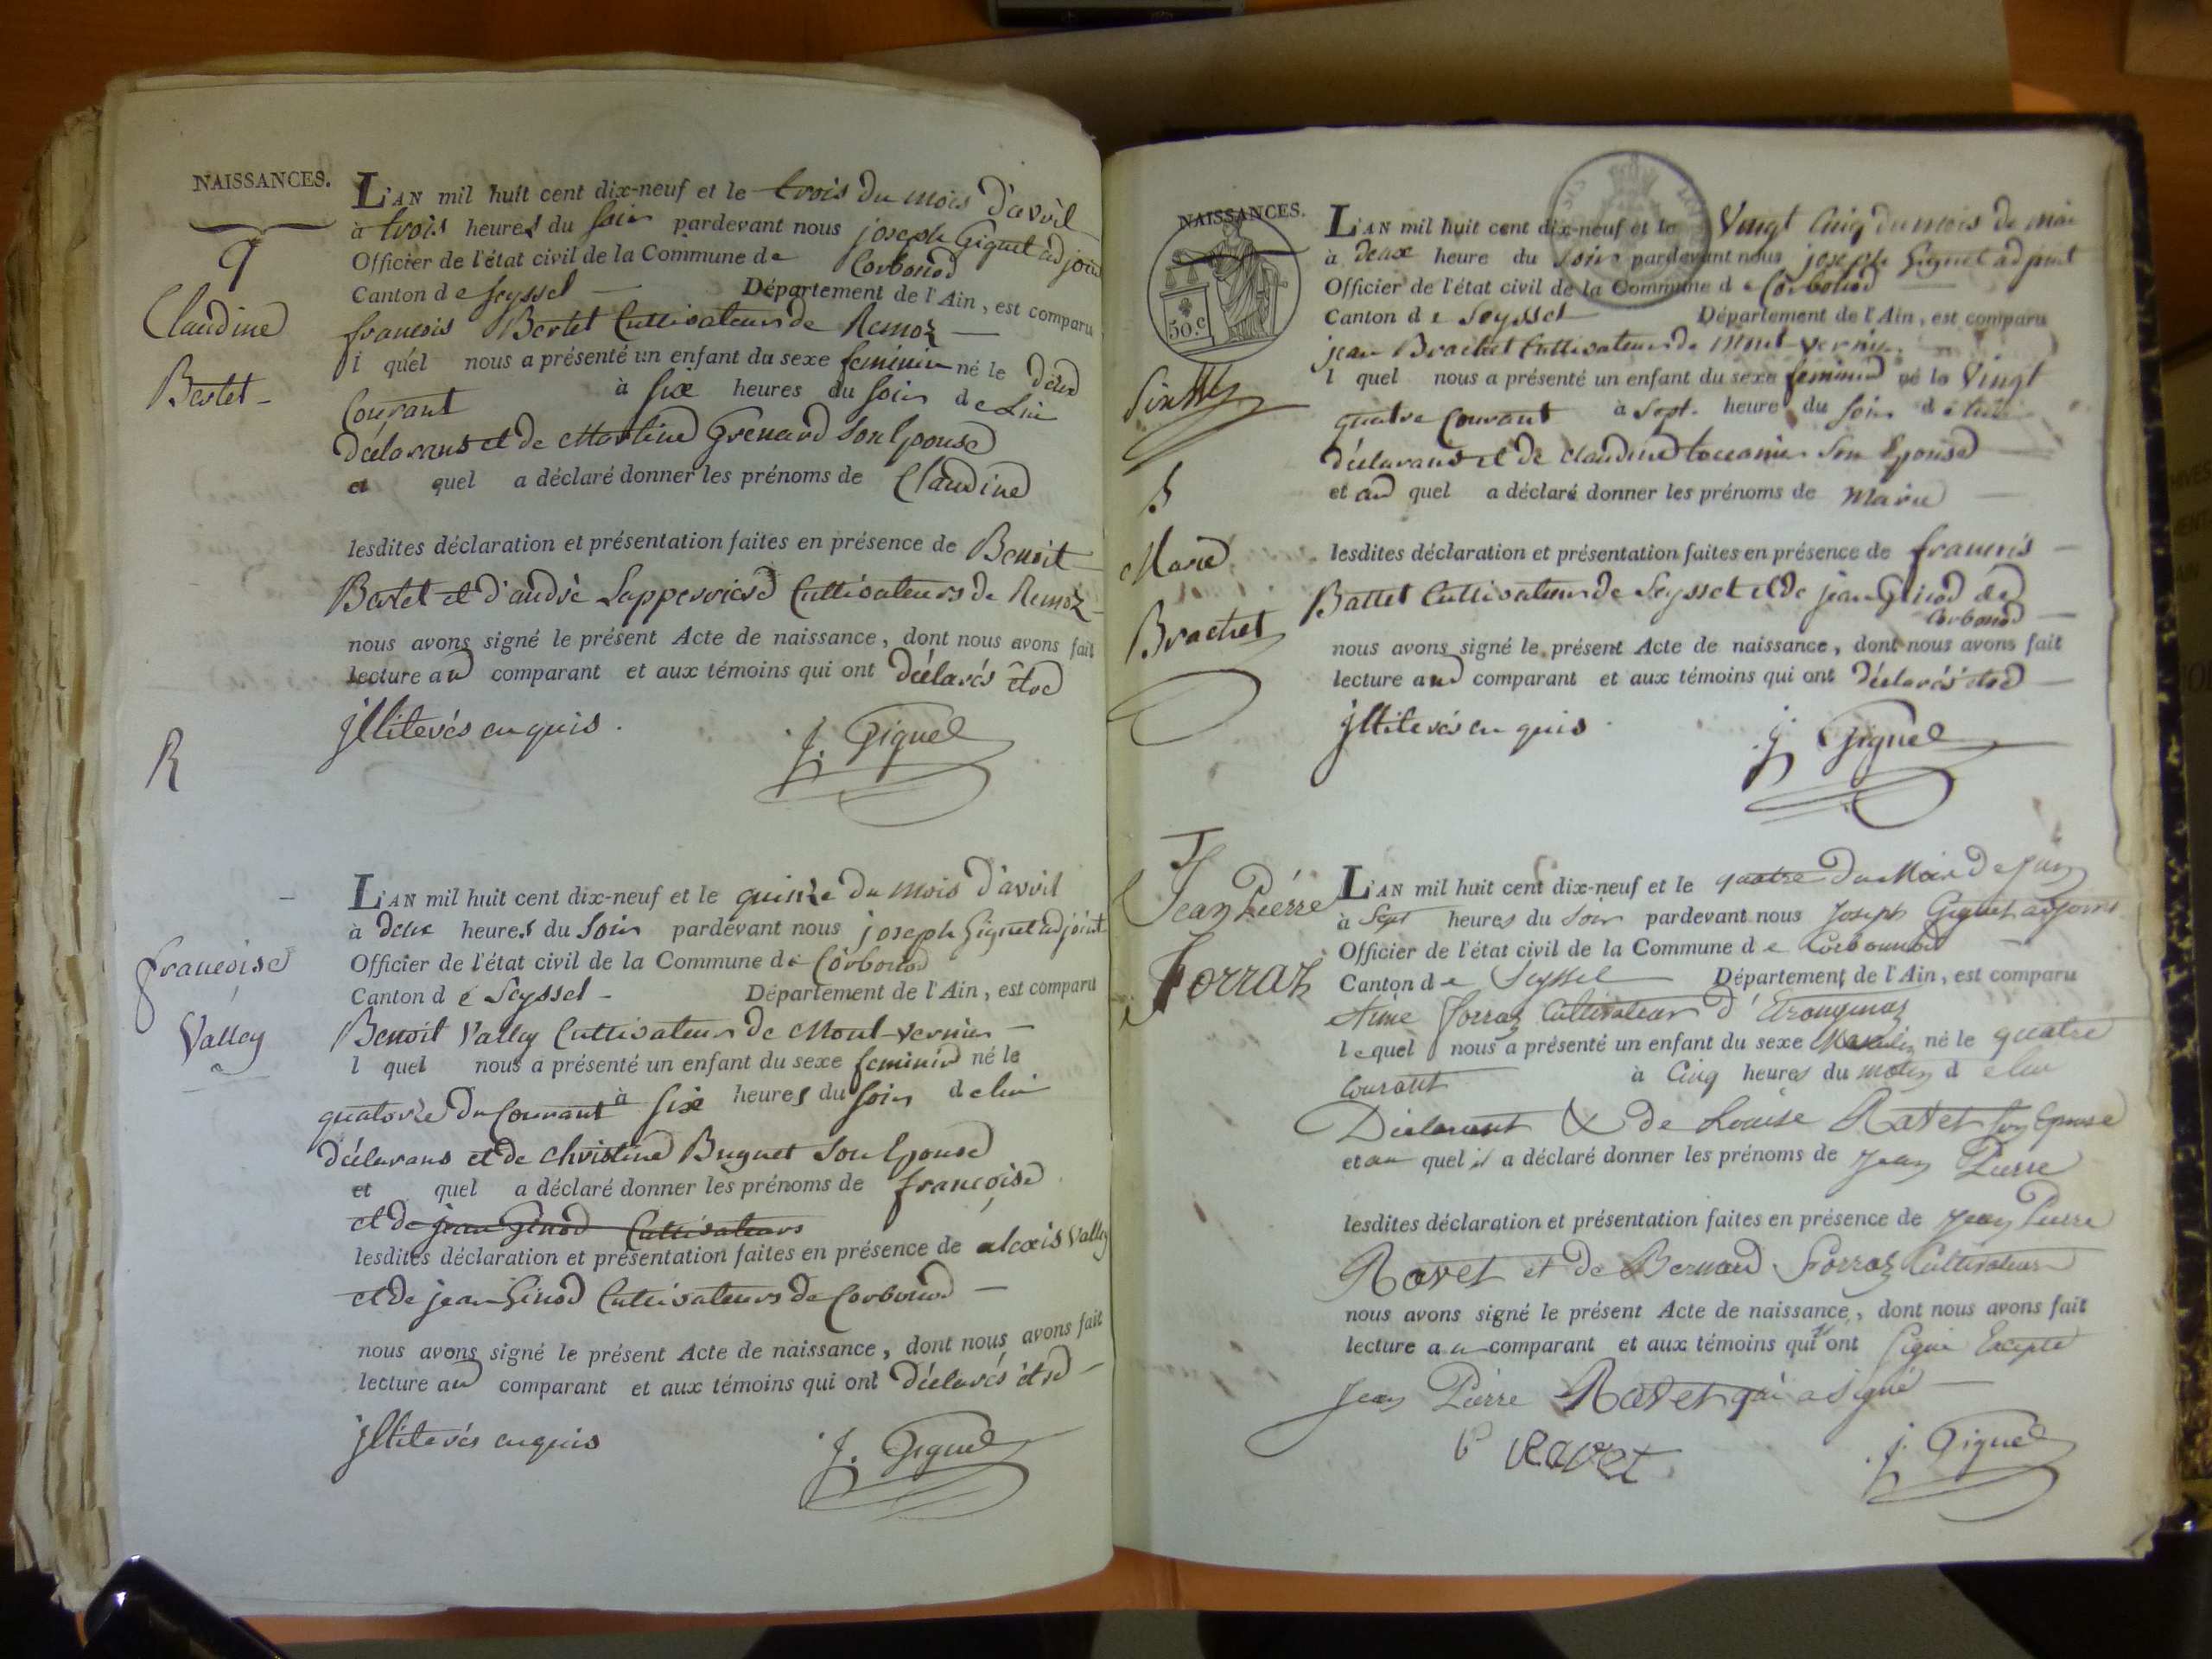 NAISSANCES.
Claudine
Bertet
R
L'AN mil huit cent dix-neuf et le trois du mois d'avril
à trois heures du soir pardevant nous joseph Giguet adjoint
Officier de l'état civil de la Commune de Corbonod
Canton de Seyssel Département de l'Ain, est comparu
françois Bertet Cultivateur de Remoz
l quel nous a présenté un enfant du sexe feminin né le deux
Courant à six heures du soir de lui
déclarans et de Martine Grenard son Epouse
et quel a déclaré donner les prénoms de Claudine
lesdites déclaration et présentation faites en présence de Benoit
Bertet et d'andré Lapperriere Cultivateurs de Remoz
nous avons signé le présent Acte de naissance, dont nous avons fait
lecture au comparant et aux témoins qui ont déclarés être
jllitérés enquis.
J. Giguet
françoise
Valley
L'AN mil huit cent dix-neuf et le quinze du mois d'avril
à deux heures du soir pardevant nous joseph Giguet adjoint
Officier de l'état civil de la Commune de Corbonod
Canton de Seyssel Département de l'Ain, est comparu
Benoit Valley Cultivateur de Mont-vernier
l quel nous a présenté un enfant du sexe feminin né le
quatorze du Courant à six heures du soir de lui
déclarans et de Christine Buguet son Epouse
et quel a déclaré donner les prénoms de françoise
et de jean Ginod Cultivateurs
lesdites déclaration et présentation faites en présence de alexis Valley
et de jean Ginod Cultivateurs de Corbonod
nous avons signé le présent Acte de naissance, dont nous avons fait
lecture au comparant et aux témoins qui ont déclarés être
jllitérés enquis
J. Giguet
NAISSANCES.
50.c
Marie
Brachet
L'AN mil huit cent dix-neuf et le Vingt Cinq du mois de mai
à deux heure du soir pardevant nous joseph Giguet adjoint
Officier de l'état civil de la Commune de Corbonod
Canton de Seyssel Département de l'Ain, est comparu
jean Brachet Cultivateur de Mont-vernier
l quel nous a présenté un enfant du sexe feminin né le Vingt
quatre Courant à sept heure du soir de lui
déclarans et de Claudine toccanier son Epouse
et au quel a déclaré donner les prénoms de Marie
lesdites déclaration et présentation faites en présence de francois
Battet Cultivateur de Seyssel et de jean Ginod de
Corbonod
nous avons signé le présent Acte de naissance, dont nous avons fait
lecture au comparant et aux témoins qui ont déclarés être
jllitérés enquis
J. Giguet
Jean Piérre
Forraz
L'AN mil huit cent dix-neuf et le quatre du Mois de Juin
à Sept heures du soir pardevant nous Joseph Giguet adjoint
Officier de l'état civil de la Commune de Corbonnod
Canton de Seyssel Département de l'Ain, est comparu
Aimé Forraz Cultivateur d'Etrouginaz
lequel nous a présenté un enfant du sexe Masculin né le quatre
courant à Cinq heures du matin d elui
Déclarant & de Louise Ravet son Epouse
et au quel il a déclaré donner les prénoms de Jean Pierre
lesdites déclaration et présentation faites en présence de Jean Pierre
Ravet et de Bernard Forraz Cultivateur
nous avons signé le présent Acte de naissance, dont nous avons fait
lecture au comparant et aux témoins qui ont Signé Excepté
Jean Pierre Ravet qui a Signé
P Ravet
J. Giguet